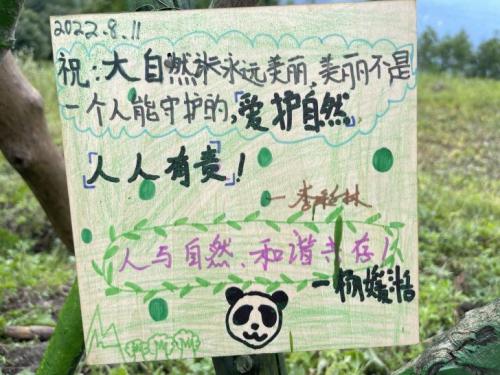 2022.8.11
祝:大自然永远美丽,美丽不是
一个人能守护的,「爱护自然
「人人有责」!
人与自然、和谐共存!